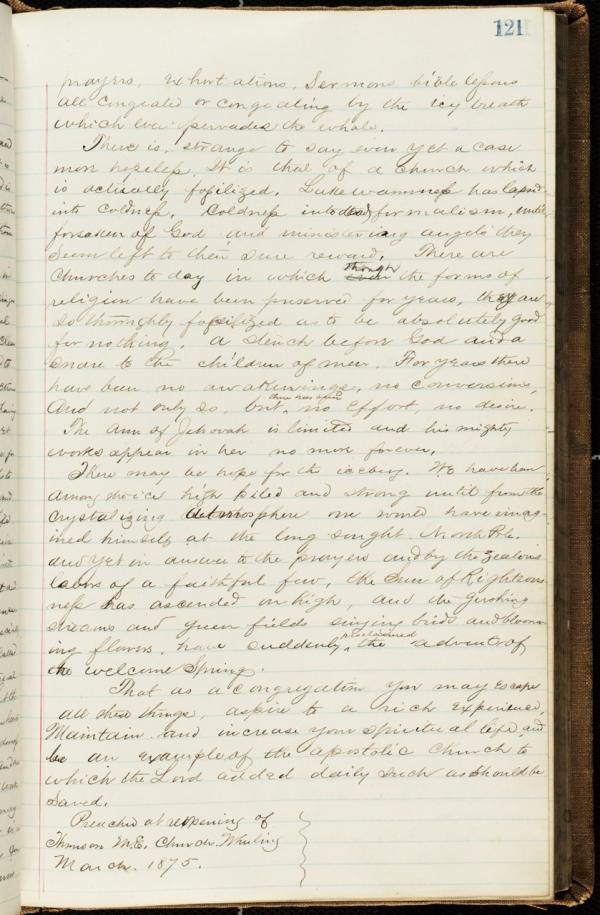 121
prayers, exhortations, Sermons bible lessons
all congealed or congealing by the icy breath
which ever pervades the whole.
There is, strange to say even yet a case
more hopeless. It is that of a church which
is actually fossilized. Lukewarmness has lapsed
into coldness. Coldness into dead formalism, until
forsaken of God and ministering angels they
seem left to their sure reward. There are
Churches to day in which though the forms of
religion have been preserved for years, they are
so thoroughly fossilized as to be absolutely good
for nothing. a stench before God and a
snare to the children of men. For years there
have been no awakenings, no conversions,
And not only so, but there has been no effort, no desire.
The arm of Jehovah is limited and his mighty
works appear in her no more forever.
There may be hope for the iceberg. We have been
among the ice high piled and strong until from the
crystalizing atmosphere one would have imag-
ined himself at the long sought North Pole.
and yet in answer to the prayers and by the zealous
labors of a faithful few, the Sun of Righteous
ness has ascended on high, and the gushing
streams and green fields singing birds and bloom
ing flowers, have suddenly proclaimed the advent of
the welcome Spring.
That as a congregation you may escape
all these things, aspire to a rich experience,
Maintain and increase your spiritual life and
be an example of the apostolic Church to
which the Lord added daily such as should be
saved.
Preached at reopening of
Thomson M.E. Church. Wheeling
March. 1875.